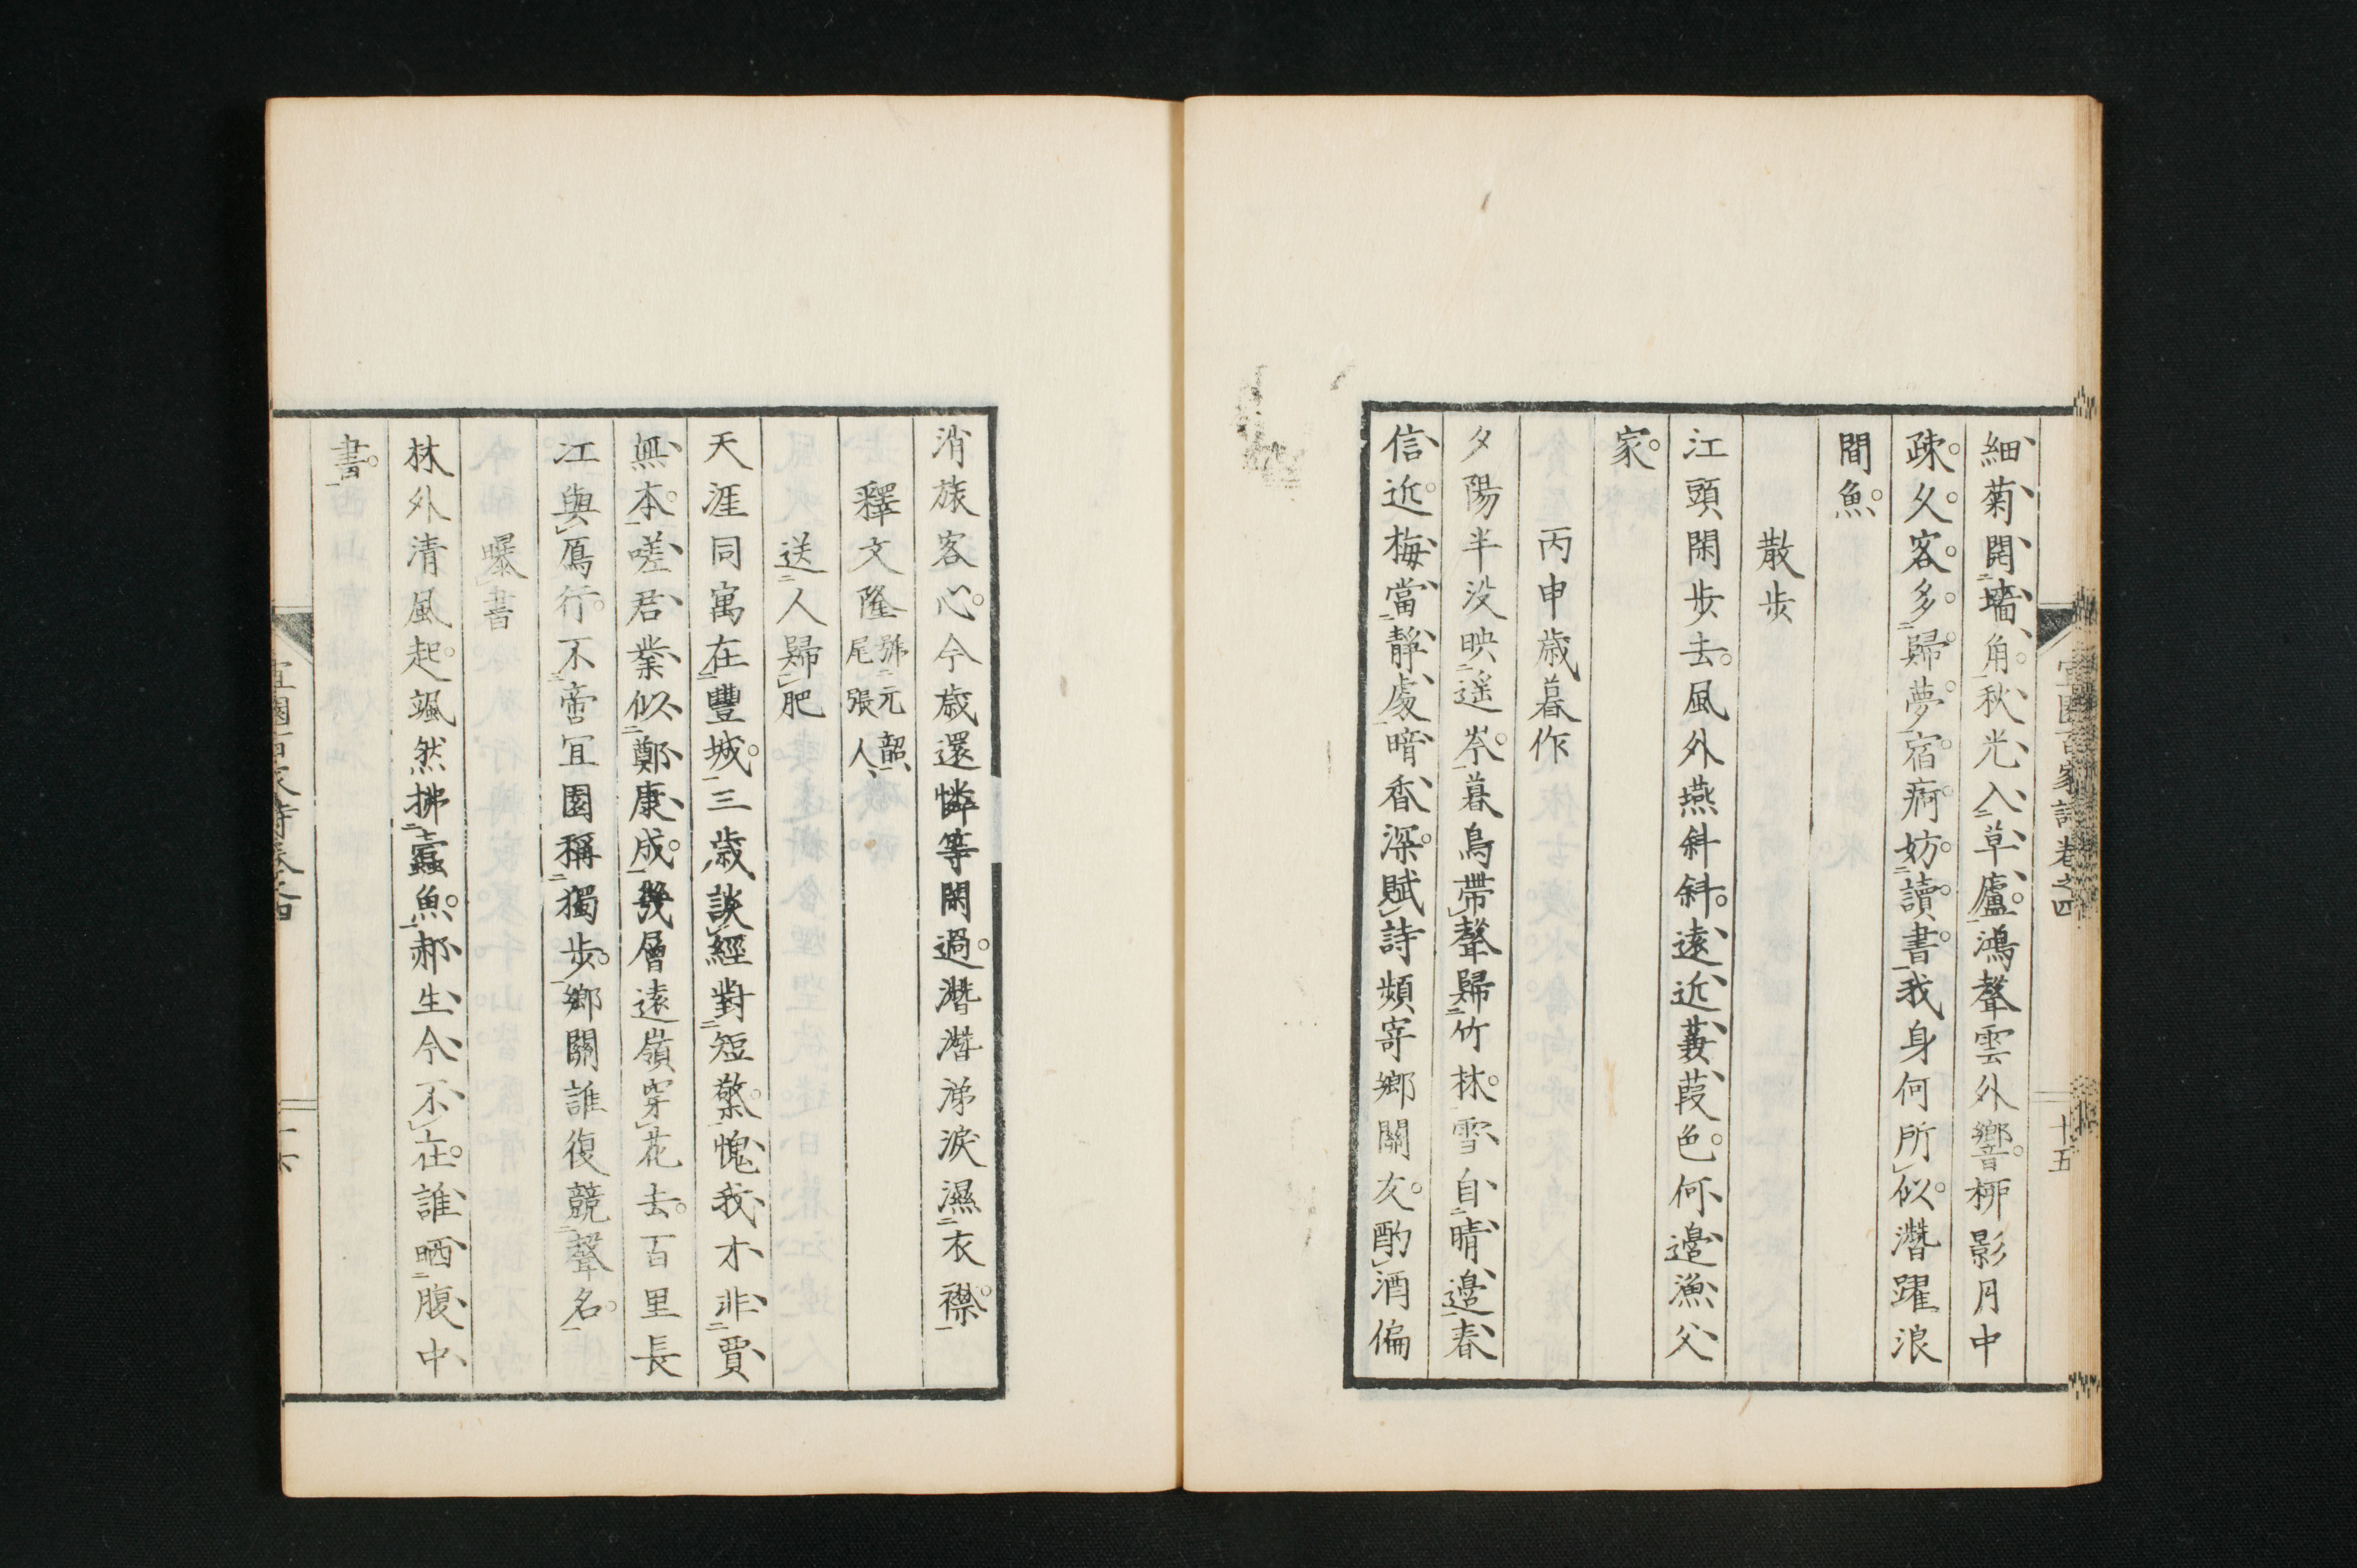 宜園百家詩卷之四
十五
細菊開墻角秋光入草廬鴻聲雲外響栁影月中
疎久客多歸夢宿痾妨讀書我身何所似潛躍浪
間魚
散步
江頭閑步去風外燕斜斜遠近蒹葭色何邊漁父
家
丙申歲暮作
夕陽半没映遥岑暮鳥帶聲歸竹林雪自晴邊春
信近梅當靜處暗香深賦詩頻寄鄉關友酌酒偏
消旅客心今歲還憐等閑過潛潛涕淚濕衣襟
釋文隆號元韶尾張人
送人歸肥
天涯同寓在豐城三歲談經對短檠愧我才非賈
無本嗟君業似鄭康成幾層遠嶺穿花去百里長
江與鴈行不啻宜園稱獨步鄉關誰復競聲名
曝書
林外清風起颯然拂蠹魚郝生今不在誰晒腹中
書
宜園百家詩卷之四
十六